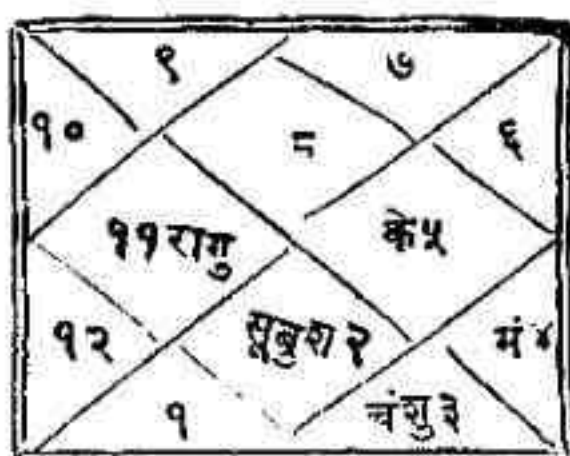 ९
७
१०
८
६
११रागु
के५
१२
सूबुश२
मं४
१
चंशु३